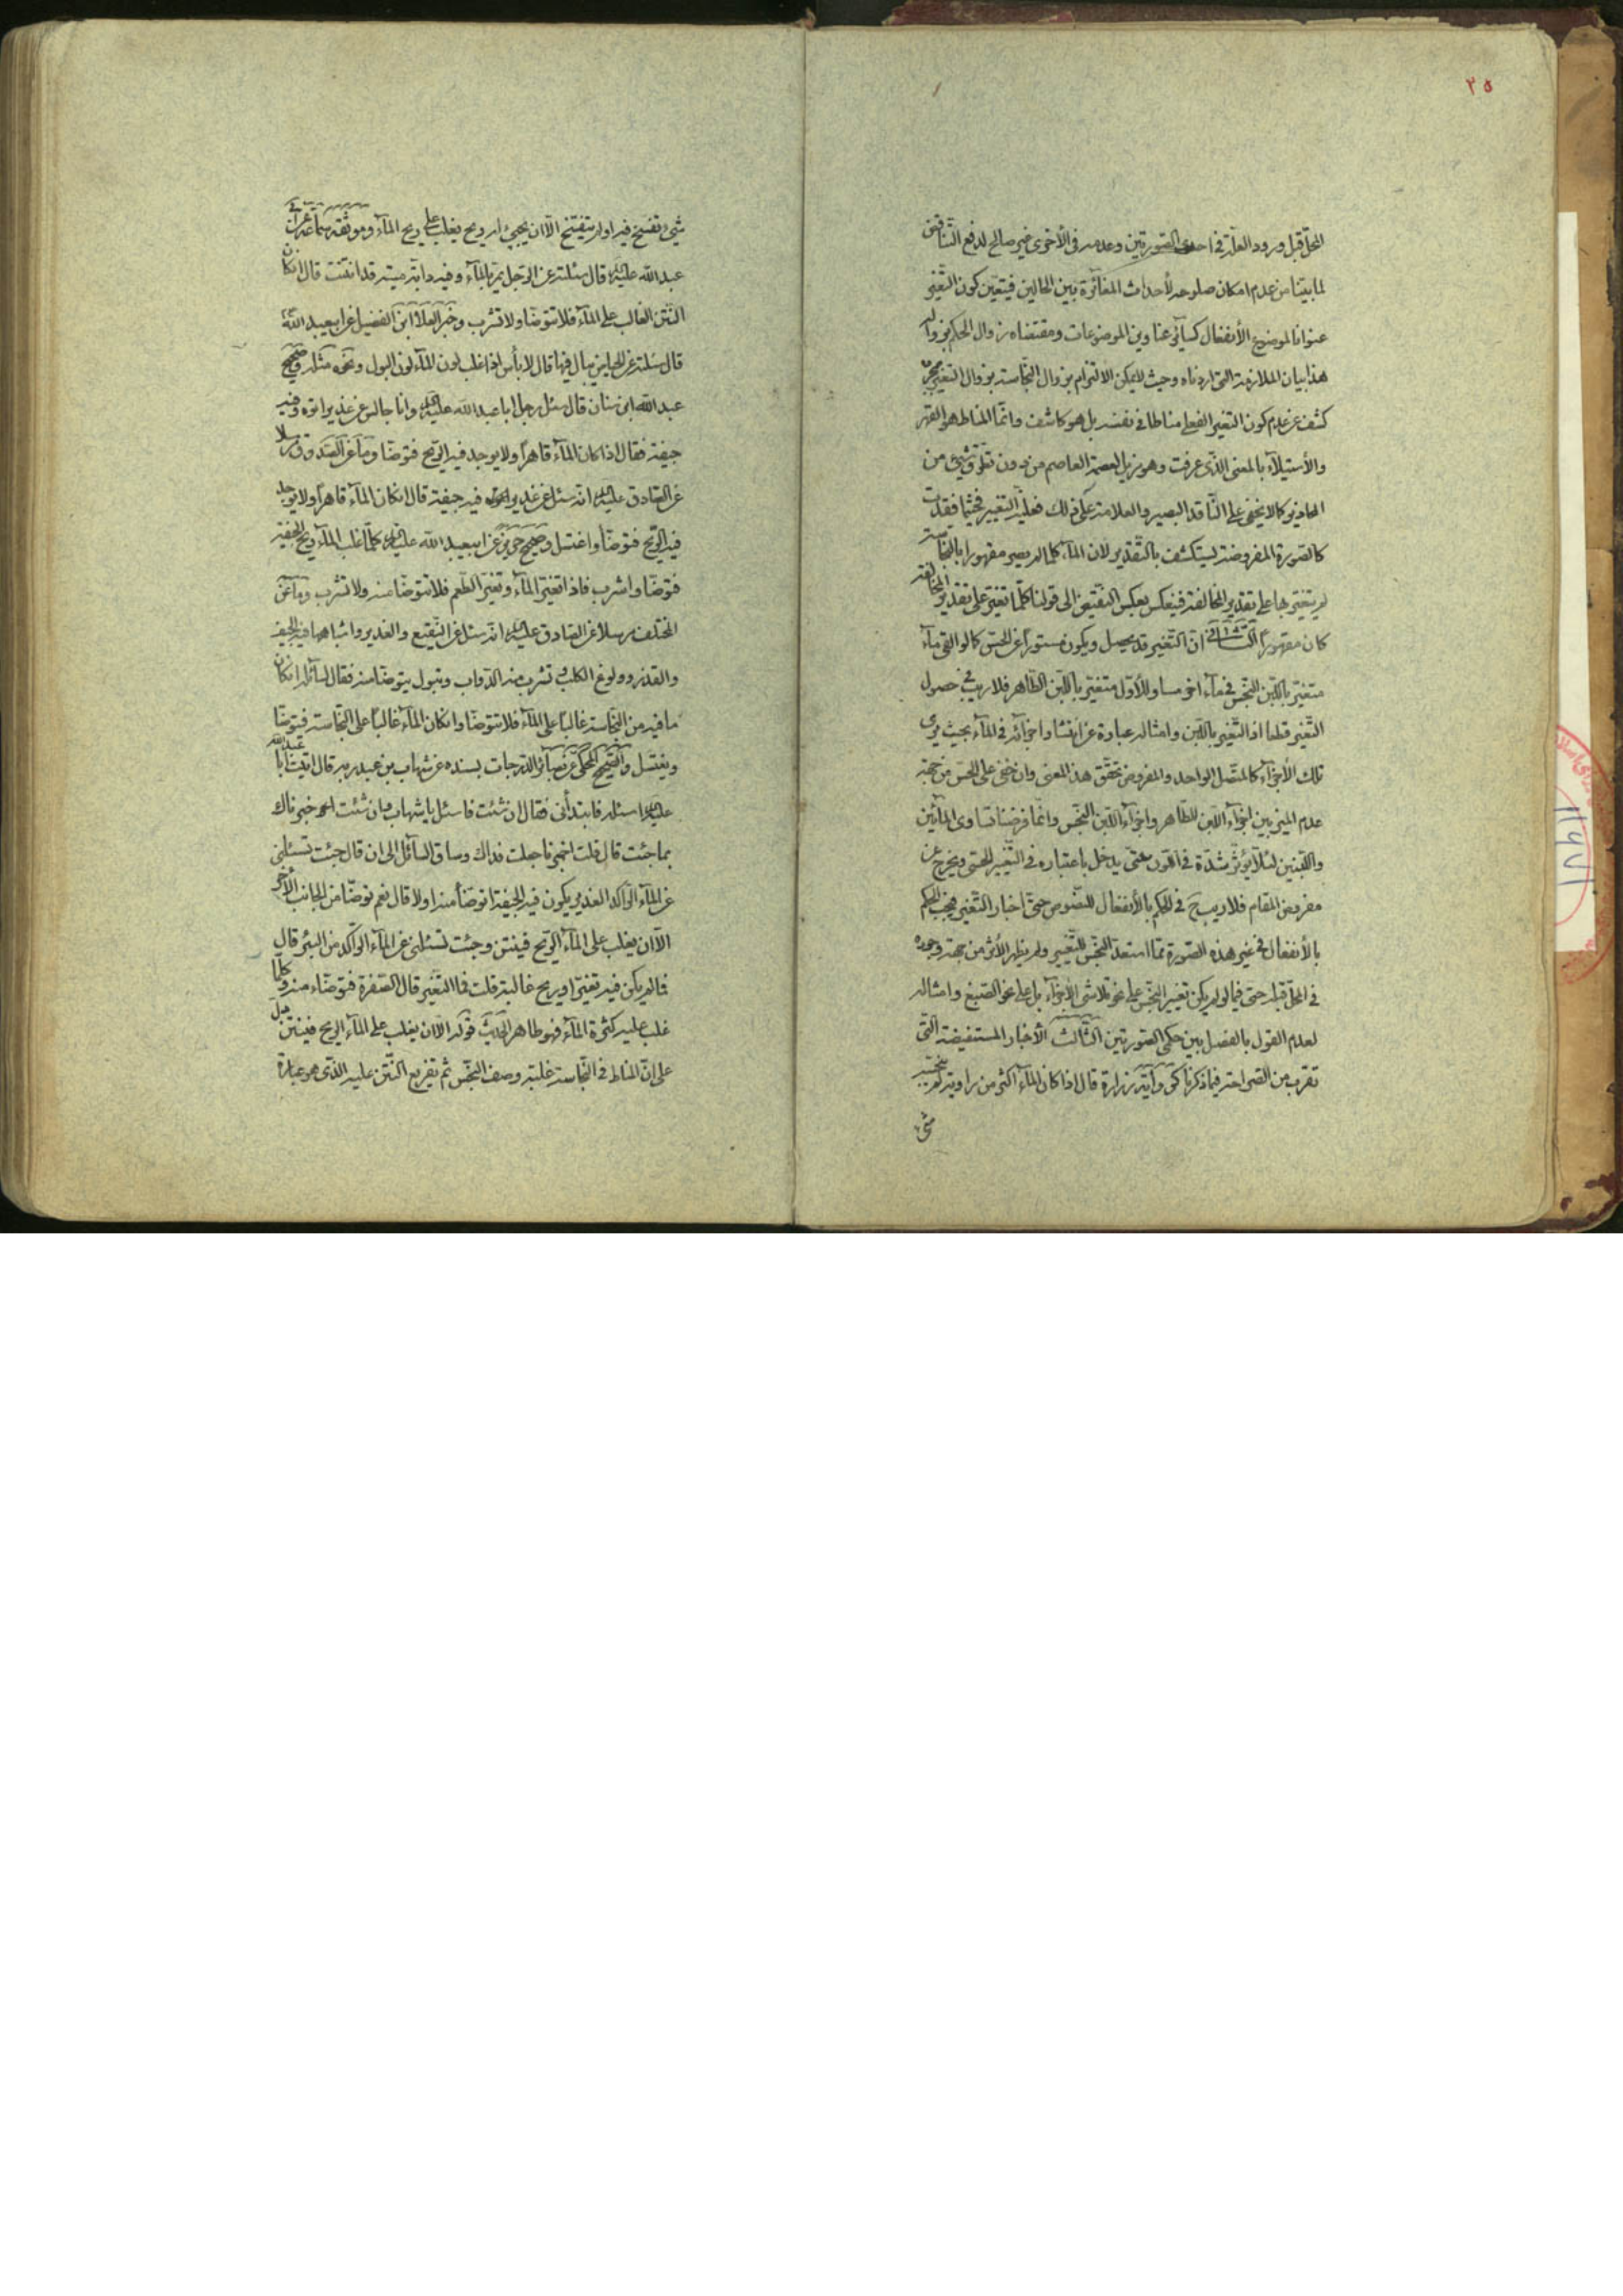 ٣٥
المحلّ قبل ورود العلّة فى احدى الصّورتين وعدمه فى الأخرى غير صالح لدفع التّناقض
لما بيّنا من عدم امكان صلوحه لأحداث المغائرة بين الحالين فيتعيّن كون التّغيّر
عنوانا لموضوع الأنفعال كسآئر عناوين الموضوعات ومقتضاه زوال الحكم بزواله
هذا بيان الملازمة التى اردناه وحيث لايمكن الالتزام بزوال النّجاسة بزوال التغيّر
كشف عن عدم كون التغيّر الفعلى مناطا فى نفسه بل هو كاشف وانّما المناط هو القهر
والأستيلآء بالمعنى الّذى عرفت وهو مزيل لعصمة العاصم من دون تعلّق شىء من
المحاذير كما لايخفى على النّاقد البصير والعلامة على ذلك فعليّة التغيير فحيثما فقدت
كالصّورة المفروضة ليستكشف بالتّقدير لان المآء كلّما لم يصر مقهورا بالنّجاسة
لم يتغيّر بها على تقدير المخالفة فينعكس بعكس النّقيض الى قولنا كلّما تغيّر على تقدير المخالفة
كان مقهورا الثّانى انّ التّغيّر قد يحصل ويكون مستورا عن الحسّ كما لو القى مآء
متغيّر باللّبن النّجس فى مآء اخر مساو للأوّل متغيّر باللّبن الطّاهر فلاريب فى حصول
التّغيّر قطعا اذ التّغيّر باللّبن وامثاله عبارة عن انتشار اجزآئه فى المآء بحيث يرى
تلك الأجزآء كالمتّصل الواحد والمفروض تحقّق هذا المعنى وان خفى على الحسّ من جهة
عدم الميز بين اجزآء اللّبن الطّاهر واجزآء اللّبن النّجس وانّما فرضنا تساوى المآئين
واللّبنين لئلّا يؤثّر شدّة فى اللّون حتّى يدخل باعتباره فى التّغيير الحسّى ويخرج عن
مفروض المقام فلاريب ح فى الحكم بالأنفعال للنّصوص حتّى اخبار التّغيّر فيجب الحكم
بالأنفعال فى غير هذه الصّورة ممّا استعدّ النّجس للتّغيير ولم يظهر الأثر من جهة وجوده
فى المحلّ قبله حتى فيما لو لم يكن تغيير النّجس على نحو تلاشى الأجزآء بل على نحو الصّبغ وامثاله
لعدم القول بالفصل بين حكمى الصّورتين الثّالث الأخبار المستفيضة الّتى
تقرب من الصّراحة فيما ذكرنا كرواية زرارة قال اذا كان المآء اكثر من راوية لم ينجّسه
شىء
شىء تفسّخ فيه او لم يتفسّخ الّا ان يجيىء له ريح يغلب على ريح المآء وموثّقة سماعة عن ابى
عبد الله عليه السّلام قال سئلته عن الرّجل يمرّ بالمآء وفيه دابّة ميتة قد انتنت قال ان كان
النّتن الغالب على المآء فلاتتوضّا ولاتشرب وخبر العلآء ابن الفضيل عن ابيعبد الله
قال سئلته عن الحياض يبال فيها قال لابأس اذا غلب لون المآء لون البول ونحوه مثله وصحيح
عبد الله ابن سنان قال سئل رجل اباعبد الله عليه السّلام وانا جالس عن غدير اتوه وفيه
جيفة فقال اذا كان المآء قاهرا ولايوجد فيه الرّيح فتوضّا وما عن الصّدوق مرسلا
عن الصّادق عليه السّلام انّه سئل عن غدير فيه جيفة قال ان كان المآء قاهرا ولايوجد
فيه الرّيح فتوضّا واغتسل وصحيح حريز عن ابيعبد الله عليه السّلام كلّما غلب المآء ريح الجيفة
فتوضّا واشرب فاذا تغيّر المآء وتغيّر الطّعم فلاتتوضّا منه ولاتشرب وما عن
المختلف مرسلا عن الصّادق عليه السّلام انّه سئل عن النّقيع والغدير واشباهها فيه الجيف
والقذر وولوغ الكلب وتشرب منه الدّواب وتبول يتوضّا منه فقال لسآئله ان كان
ما فيه من النّجاسة غالبا على المآء فلاتتوضّا وان كان المآء غالبا على النّجاسة فتوضّا
وتغتسل والصّحيح المحكى عن بصآئر الدّرجات بسنده عن شهاب بن عبد ربه قال اتيت ابا عبد الله
عليه السّلام اسئله فابتدأنى فقال ان شئت فاسئل ياشهاب وان شئت اخبرناك
بما جئت قال قلت اخبرنا جعلت فداك وساق السآئل الى ان قال جئت تسئلنى
عن المآء الرّاكد الغدير يكون فيه الجيفة اتوضّأ منه اولا قال نعم توضّا من الجانب الأخر
الّا ان يغلب على المآء الرّيح فينتن وجئت تسئلنى عن المآء الرّاكد من البئر قال
فما لم يكن فيه تغيّر او ريح غالبة قلت فما التّغيّر قال الصّفرة فتوضّاء منه وكلّما
غلب عليه كثرة المآء فهو طاهر قوله الّا ان يغلب على المآء الرّيح فينتن يدلّ
على انّ المناط فى النّجاسة غلبة وصف النّجس ثم تفريع النّتن عليه الّذى هو عبارة